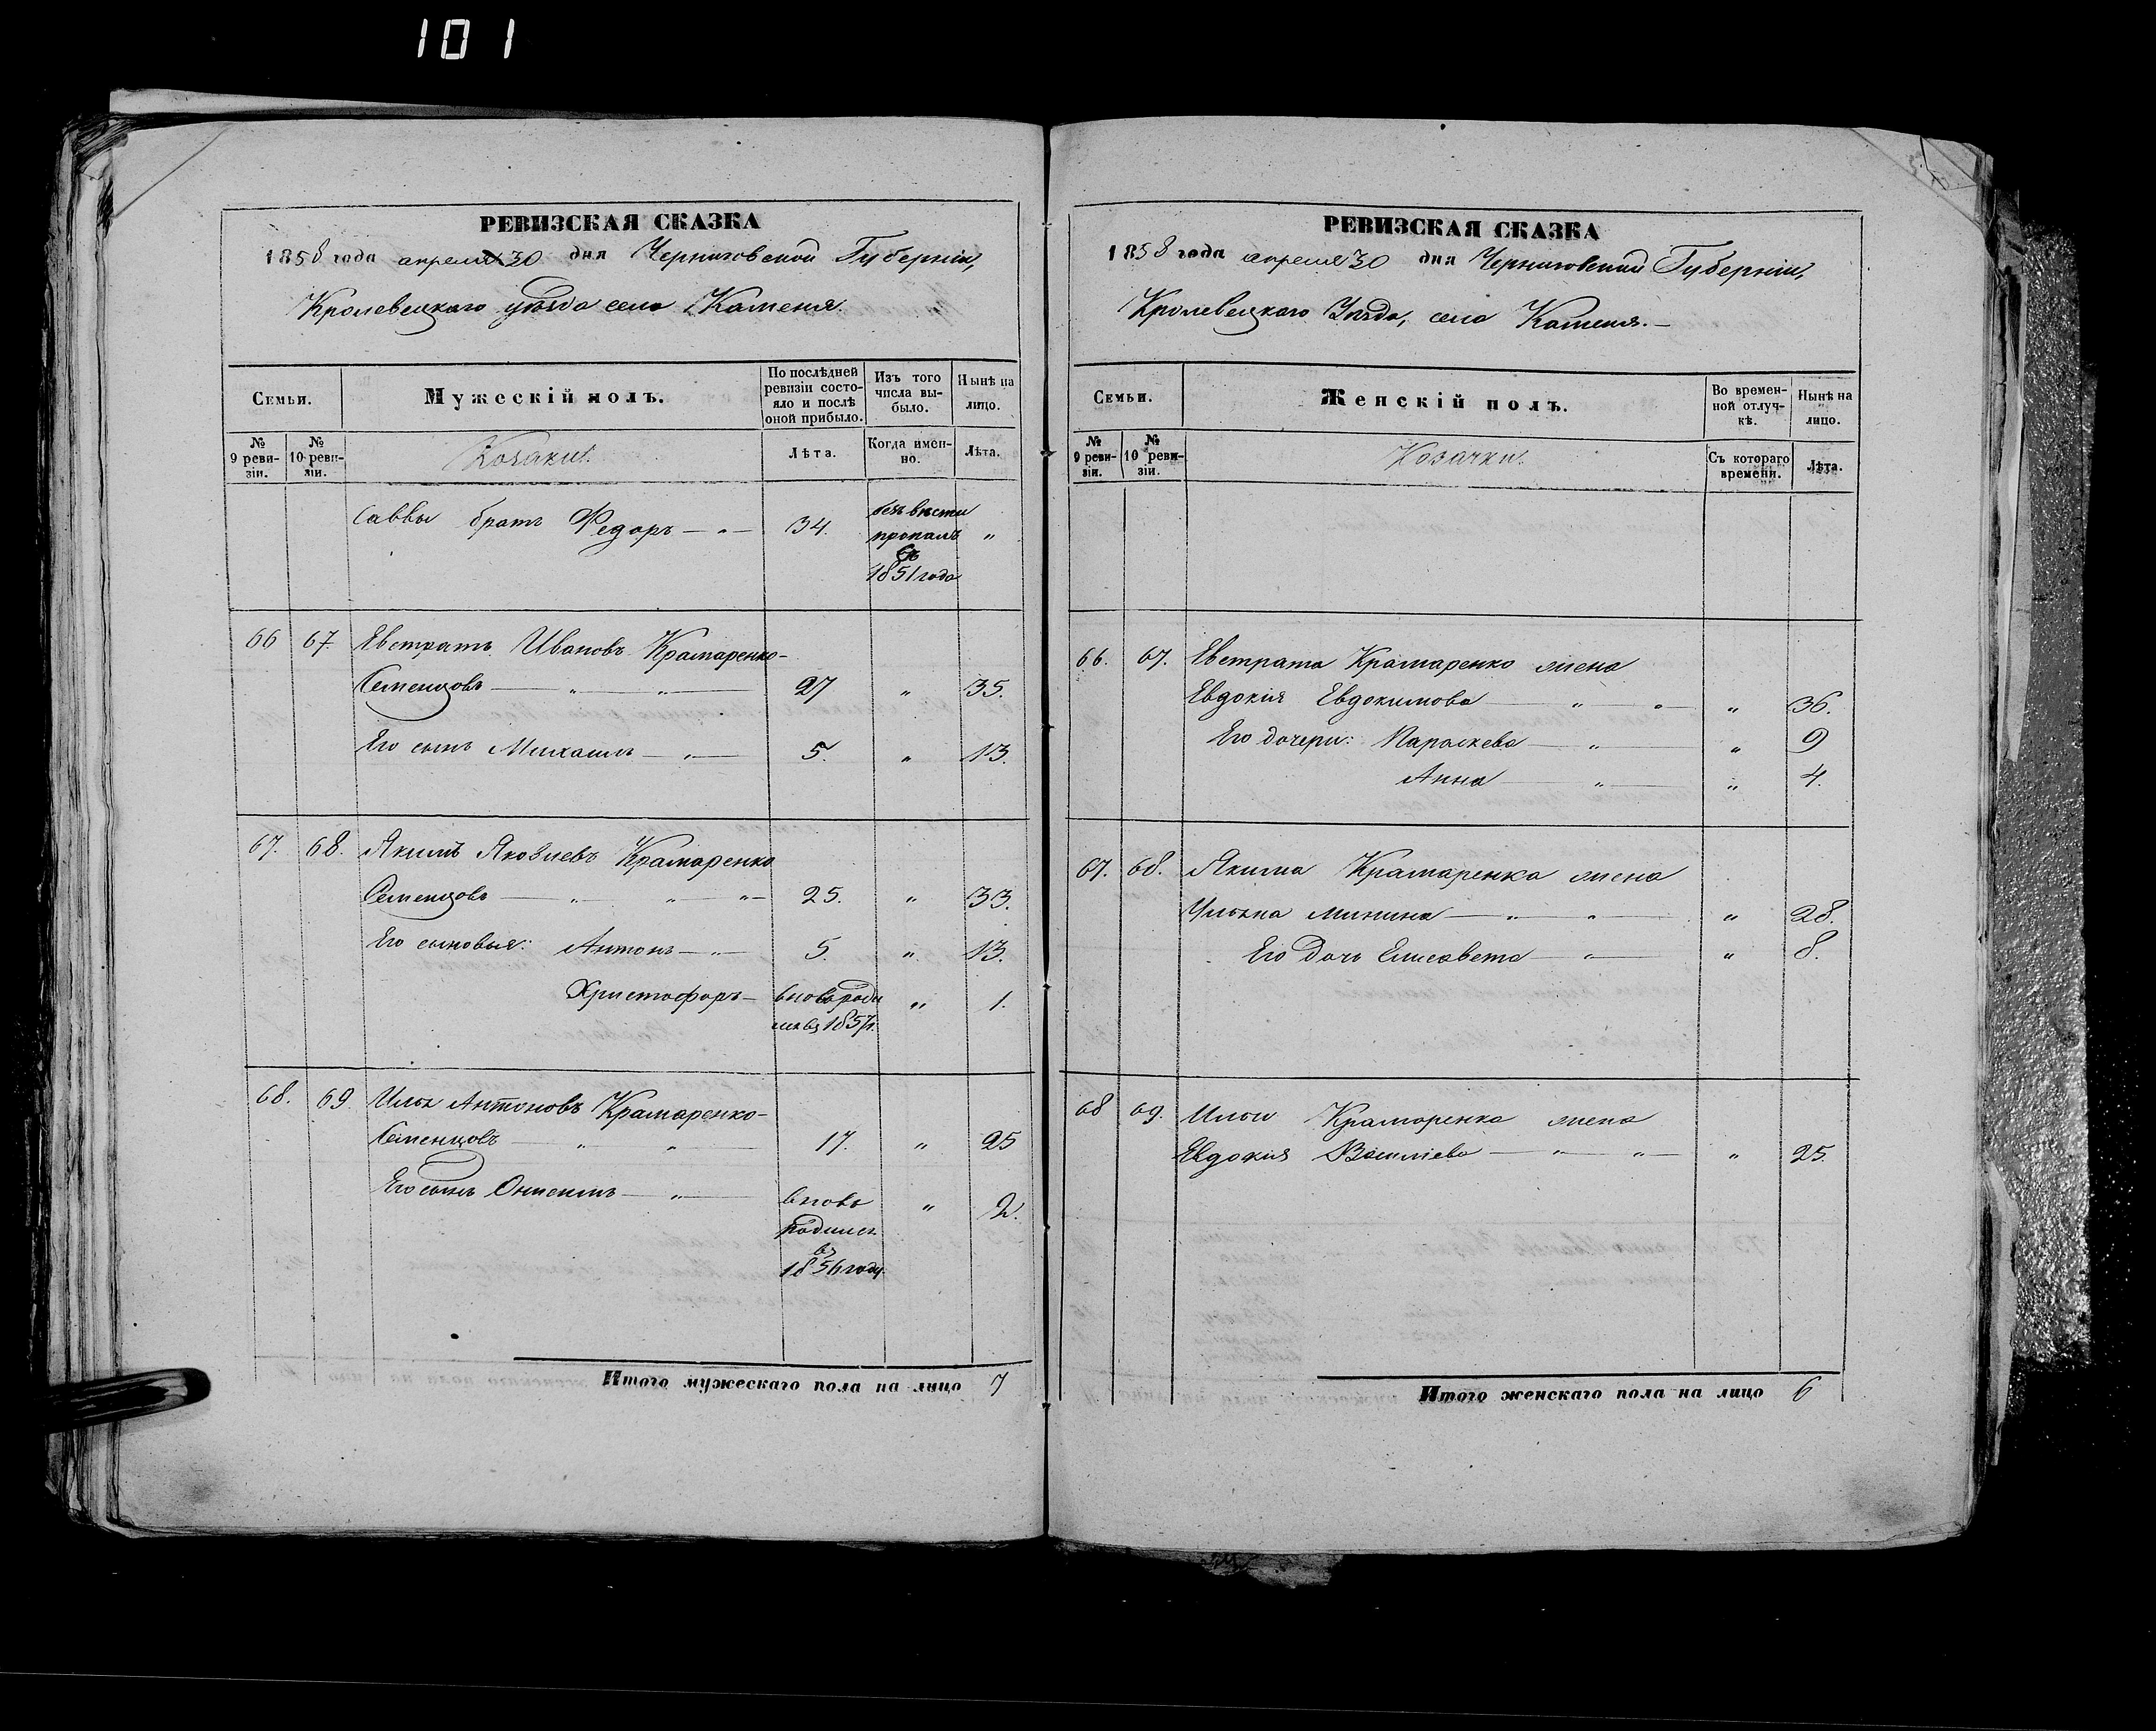 101
РЕВИЗСКАЯ СКАЗКА
1858 года апреля 30 дня Черниговской Губерніи,
Кролевецкаго уѣзда села Каменя.
Семьи.
Мужескій полъ.
По послѣдней ревизіи состояло и послѣ оной прибыло.
Изъ того числа выбыло.
Нынѣ на лицо.
№ 9 ревизіи.
№ 10 ревизіи.
Козаки.
Лѣта.
Когда именно.
Лѣта.
Саввы братъ Федоръ — " — 34. безъ вѣсти "
пропалъ
съ
1851 года
66 67. Евстратъ Ивановъ Крамаренко-
Семенцовъ — " — " — 27 " 35.
Его сынъ Михаилъ — " — 5. " 13.
67. 68. Якимъ Яковлевъ Крамаренко
Семенцовъ — " — " — " — 25. " 33.
Его сыновья: Антонъ — " — 5. " 13.
Христофоръ — вновь роди " 1.
лся въ 1857 г.
68. 69. Илья Антоновъ Крамаренко-
Семенцовъ — " — " — 17. " 25
Его сынъ Онисимъ — " — вновь " 2.
родился
въ
1856 году.
Итого мужескаго пола на лицо 7
РЕВИЗСКАЯ СКАЗКА
1858 года апреля 30 дня Черниговской Губерніи,
Кролевецкаго Уѣзда, села Каменя. —
Семьи.
Женскій полъ.
Во временной отлучкѣ.
Нынѣ на лицо.
№ 9 ревизіи.
№ 10 ревизіи.
Козачки.
Съ котораго времени.
Лѣта.
66. 67. Евстрата Крамаренко жена
Евдокія Евдокимова — " — " — " 36.
Его дочери: Параскева — " — " 9
Анна — " — " 4.
67. 68. Якима Крамаренка жена
Ульяна Минина — " — " — " 28.
Его дочь Елисавета — " — " 8.
68 69. Ильи Крамаренка жена
Евдокія Василіева — " — " — " 25.
Итого женскаго пола на лицо 6